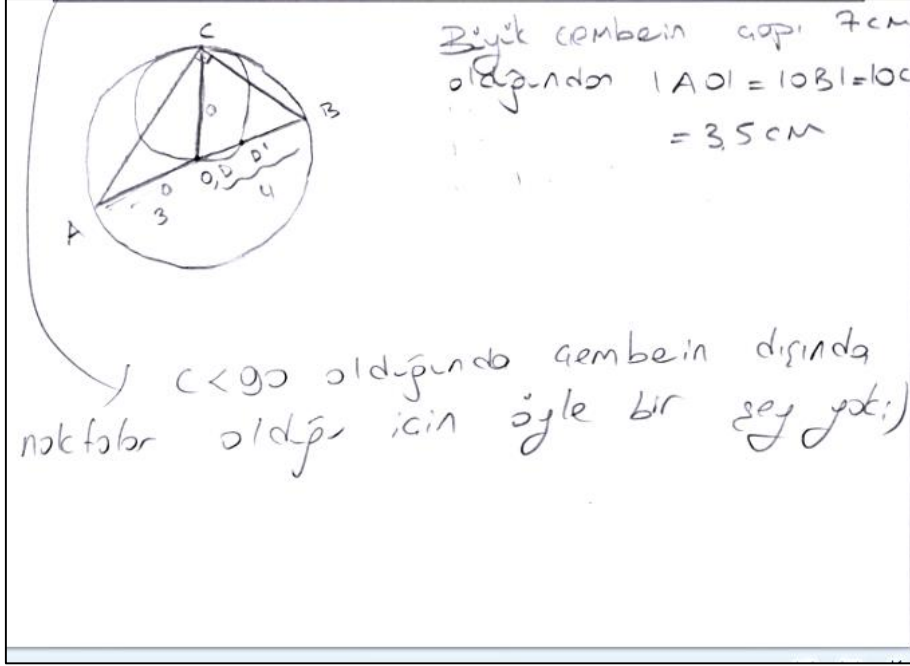 C
Büyük çemberin çapı 7 cm
olduğundan |AO| = |OB| = |OC
= 3,5 cm
B
O
D'
O, D
O
3
4
A
C < 90 olduğunda çemberin dışında
noktalar olduğu için öyle bir şey yok :)